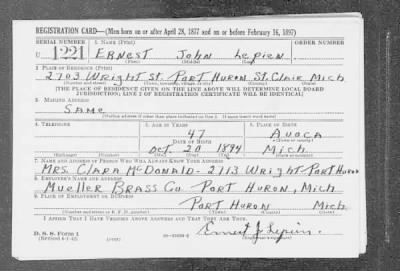 REGISTRATION CARD—(Men born on or after April 28, 1877 and on or before February 16, 1897)
SERIAL NUMBER 1. NAME (Print) ORDER NUMBER
U 1221 ERNEST JOHN Lepien
(First) (Middle) (Last)
2. PLACE OF RESIDENCE (Print)
2703 Wright St. PORT HURON St. Clair Mich
(Number and street) (Town, township, village, or city) (County) (State)
[THE PLACE OF RESIDENCE GIVEN ON THE LINE ABOVE WILL DETERMINE LOCAL BOARD
JURISDICTION; LINE 2 OF REGISTRATION CERTIFICATE WILL BE IDENTICAL]
3. MAILING ADDRESS
SAME
4. TELEPHONE 5. AGE IN YEARS 6. PLACE OF BIRTH
47 AVOCA
DATE OF BIRTH
Oct. 20 1894 Mich
(Exchange) (Number) (Mo.) (Day) (Yr.) (State or country)
7. NAME AND ADDRESS OF PERSON WHO WILL ALWAYS KNOW YOUR ADDRESS
MRS. CLARA McDONALD- 2113 Wright-PORT HURON
8. EMPLOYER'S NAME AND ADDRESS
Mueller BRASS Co PORT HURON, Mich
9. PLACE OF EMPLOYMENT OR BUSINESS
PORT HURON Mich
(Number and street or R. F. D. number) (Town) (County) (State)
I AFFIRM THAT I HAVE VERIFIED ABOVE ANSWERS AND THAT THEY ARE TRUE.
D. S. S. Form 1 Ernest J Lepien
(Revised 4-1-42)